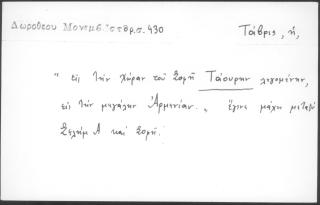 Δωροθεου Μονεμβ. ιστορ.σ.430
Τάβρις, ἡ,
" εἰς τὴν χώραν τοῦ Σοφῆ Τάουρην λεγομένην,
εἰς τὴν μεγάλην Ἀρμενίαν. „ ἔγινε μάχη μεταξὺ
Σελὴμ Α καὶ Σοφῆ.